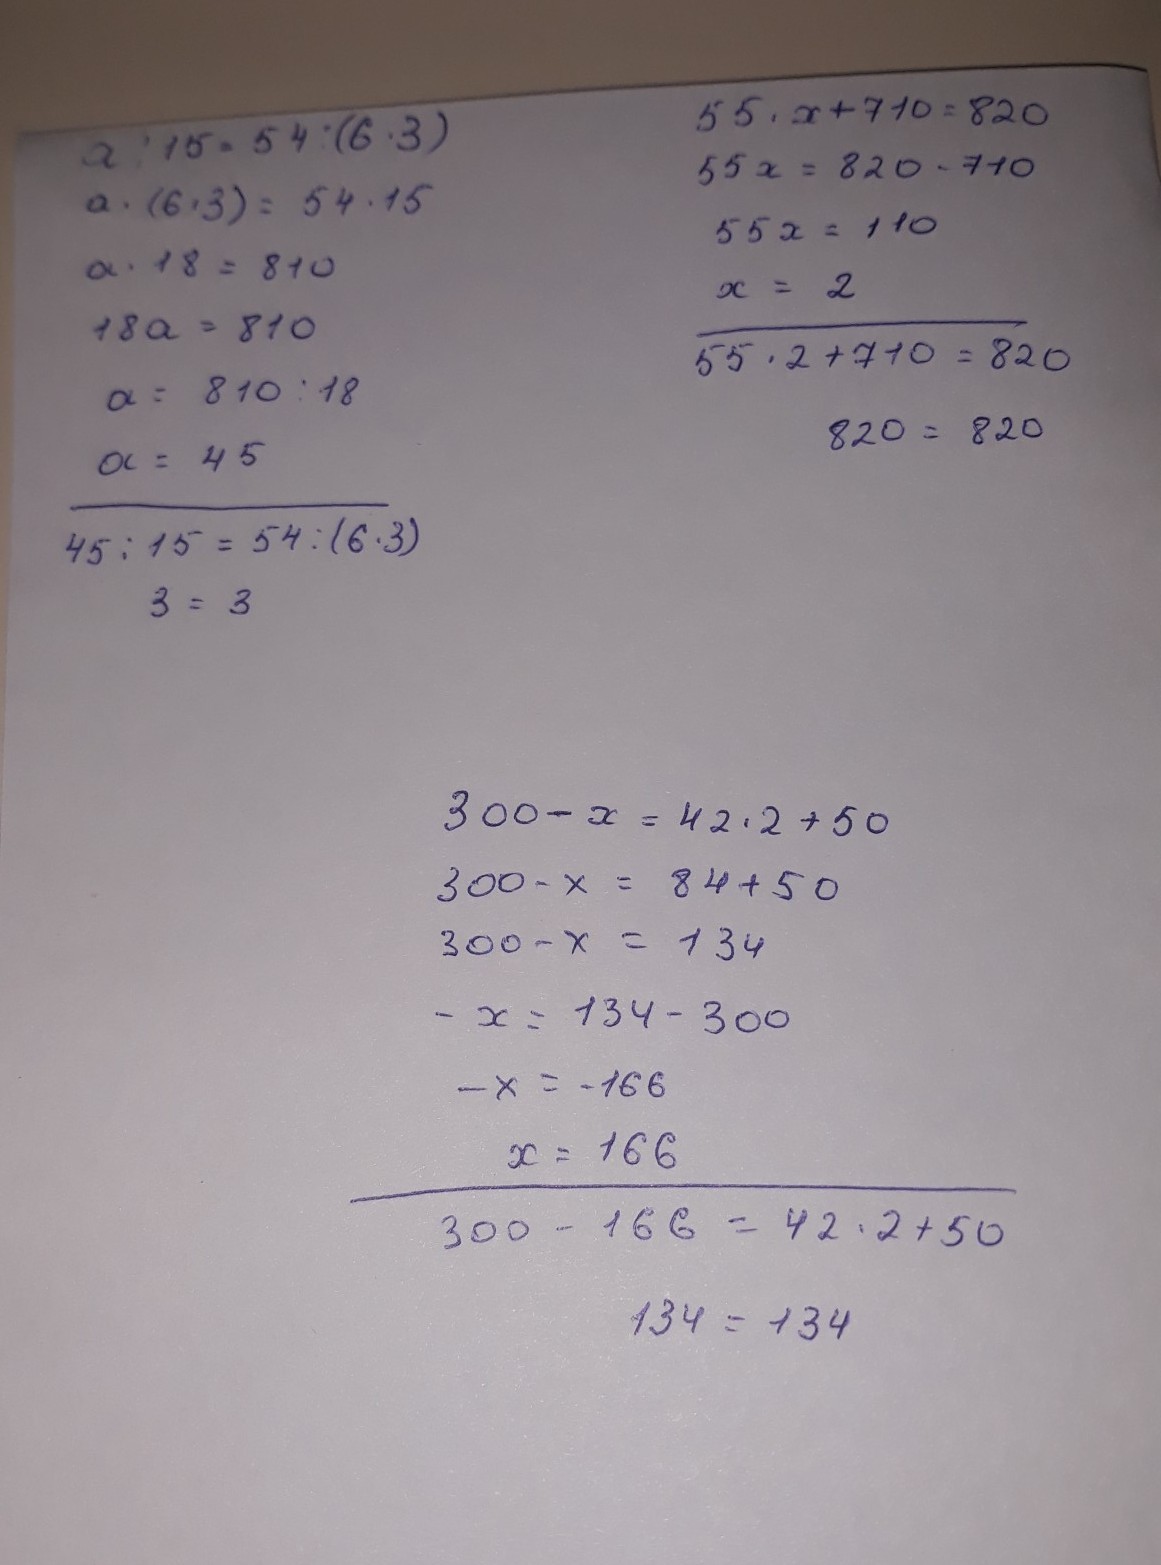 a : 15 = 54 : (6 · 3)
a · (6 · 3) = 54 · 15
a · 18 = 810
18a = 810
a = 810 : 18
a = 45
45 : 15 = 54 : (6 · 3)
3 = 3
55 · x + 710 = 820
55x = 820 - 710
55x = 110
x = 2
55 · 2 + 710 = 820
820 = 820
300 - x = 42 · 2 + 50
300 - x = 84 + 50
300 - x = 134
- x = 134 - 300
- x = -166
x = 166
300 - 166 = 42 · 2 + 50
134 = 134